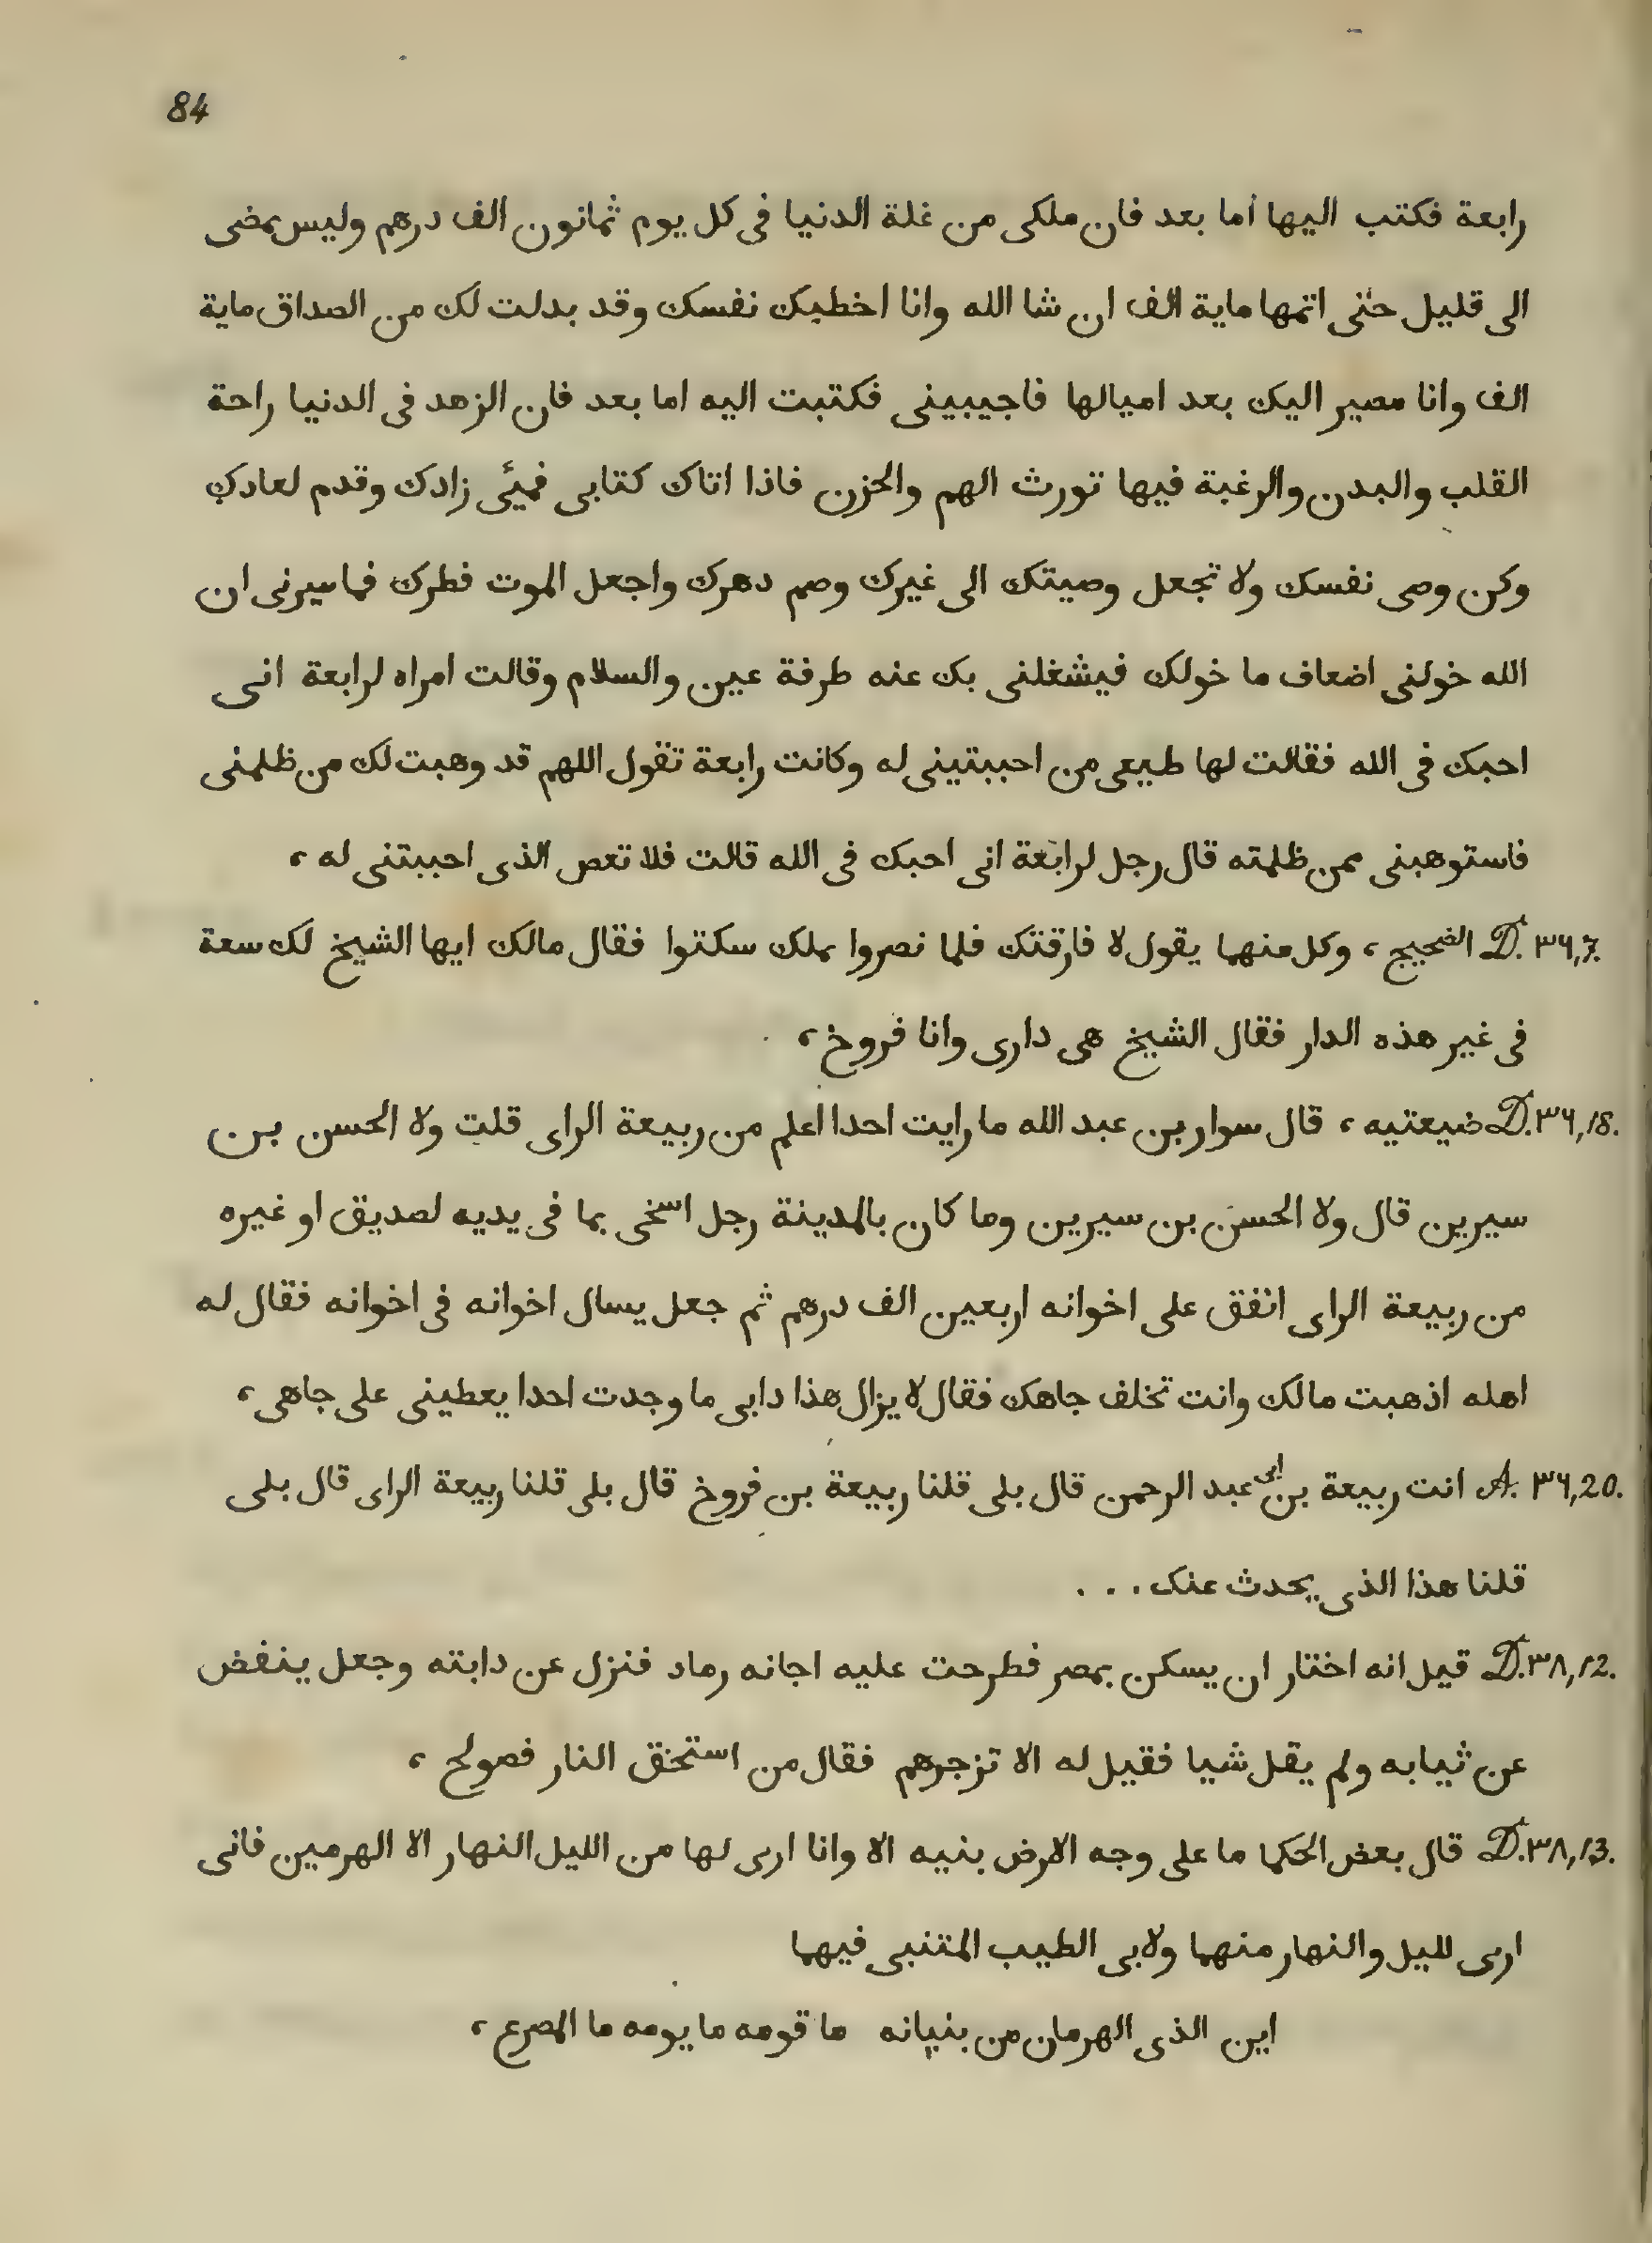 84
رابعة فكتب اليها اما بعد فان ملكى من غلة الدنيا فى كل يوم ثمانون الف درهم وليس يمضى
الى قليل حتى اتمها ماية الف ان شا الله وانا اخطبك نفسك وقد بدلت لك من الصداق ماية
الف وانا مصير اليك بعد اميالها فاجيبينى فكتبت اليه اما بعد فان الزهد فى الدنيا راحة
القلب والبدن والرغبة فيها تورث الهم والحزن فاذا اتاك كتابى فهيئى زادك وقدم لعادك
وكن وصى نفسك ولا تجعل وصيتك الى غيرك وصم دهرك واجعل الموت فطرك فما سيرنى ان
الله خولنى اضعاف ما خولك فيشغلنى بك عنه طرفة عين والسلام وقالت امراه لرابعة انى
احبك فى الله فقالت لها طيعى من احببتينى له وكانت رابعة تقول اللهم قد وهبت لك من ظلمنى
فاستوهبنى ممن ظلمته قال رجل لرابعة انى احبك فى الله قالت فلا تعص الذى احببتنى له ،
D. ٣٦,7. الضجيج ، وكل منهما يقول لا فارقتك فلما نصروا بملك سكتوا فقال مالك ايها الشيخ لك سعة
فى غير هذه الدار فقال الشيخ هى دارى وانا فروخ ،
D. ٣٦,18. ضيعتيه ، قال سوار بن عبد الله ما رايت احدا اعلم من ربيعة الراى قلت ولا الحسن بن
سيرين قال ولا الحسن بن سيرين وما كان بالمدينة رجل اسخى بما فى يديه لصديق او غيره
من ربيعة الراى انفق على اخوانه اربعين الف درهم ثم جعل يسال اخوانه فى اخوانه فقال له
اهله اذهبت مالك وانت تخلف جاهك فقال لا يزال هذا دابى ما وجدت احدا يعطينى على جاهى ،
A. ٣٦,20. انت ربيعة بن ابى عبد الرحمن قال بلى قلنا ربيعة بن فروخ قال بلى قلنا ربيعة الراى قال بلى
قلنا هذا الذى يحدث عنك . . .
D. ٣٨,12. قيل انه اختار ان يسكن بمصر فطرحت عليه اجانه رماد فنزل عن دابته وجعل ينفض
عن ثيابه ولم يقل شيا فقيل له الا تزجرهم فقال من استحق النار فصولح ،
D. ٣٨,13. قال بعض الحكما ما على وجه الارض بنيه الا وانا ارى لها من الليل النهار الا الهرمين فانى
ارى لليل والنهار منهما ولابى الطيب المتنبى فيهما
اين الذى الهرمان من بنيانه ما قومه ما يومه ما المصرع ،